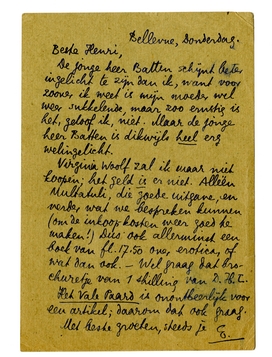 Bellevue, Donderdag.
Beste Henri,
De jonge heer Batten schijnt beter
ingelicht te zijn dan ik, want voor
zoover ik weet is mijn moeder wel
weer sukkelende, maar zoo ernstig is
het, geloof ik, niet. Maar de jonge
heer Batten is dikwijls heel erg
welingelicht.
Virginia Woolf zal ik maar niet
koopen; het geld is er niet. Alleen
Multatuli, die goede uitgave, en
verder wat we bespreken kunnen
(om de inkoopkosten weer goed te
maken!) Dus ook allerminst een
boek van fl. 17.50 over erotica, of
wat dan ook. – Wel graag dat bro-
churetje van 1 shilling van D.H.L.
Het Vale Paard is onontbeerlijk voor
een artikel; daarom dat ook graag.
Met beste groeten, steeds je
E.